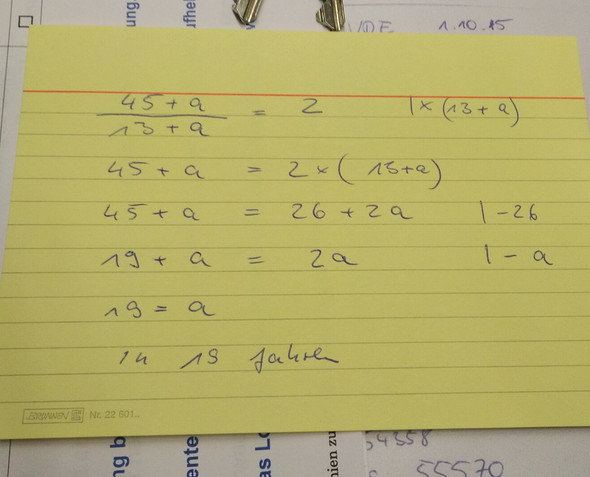 ung
ufhe
UDE 1.10.15
45 + a / 13 + a = 2 | × (13 + a)
45 + a = 2 × ( 13+a)
45 + a = 26 + 2a | - 26
19 + a = 2a | - a
19 = a
in 19 Jahren
BRUNNEN Nr. 22 601
ng b
ente
as Lo
nien zu
4358
55570